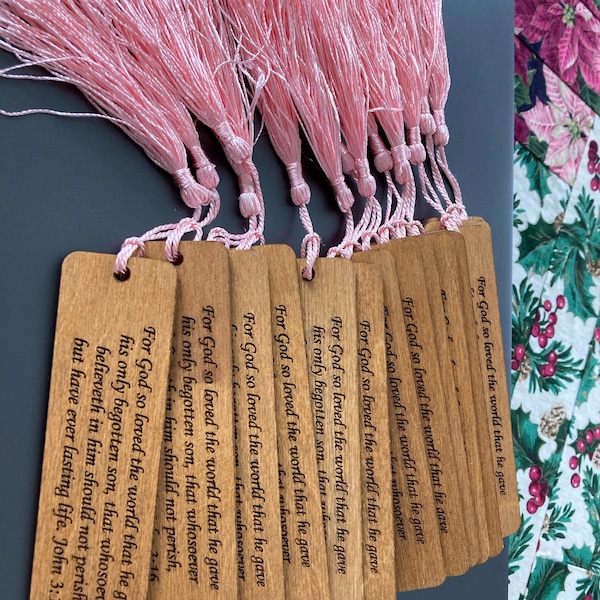 For God so loved the world that he
his only begotten son, that whosoever
believeth in him should not perish
but have ever lasting life, John 3:
For God so loved the world that he gave
his only begotten son, that whosoever
in him should not perish,
3:16
For God so loved the world that he gave
For God so loved the world that he gave
For God so loved the world that he gave
his only begotten son, that
For God so loved the world that he gave
For God so loved the world that he gave
that whosoever
For God so loved the world that he gave